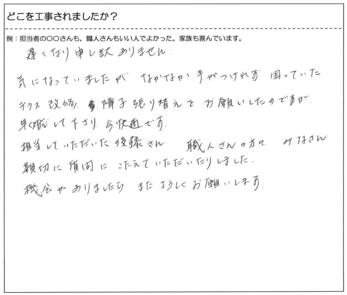 どこを工事されましたか？
例：担当者の〇〇さんも、職人さんもいい人でよかった。家族も喜んでいます。
遅くなり申し訳ありません。
気になっていましたが なかなか手がつけれず 困っていた
テラス改修、障子張り替えを お願いしたのですが
早く対応して下さり 今快適です。
担当していただいた後藤さん 職人さんの方々 みなさん
親切に質問に こたえていただいたりしました。
機会がありましたら またよろしくお願いします。